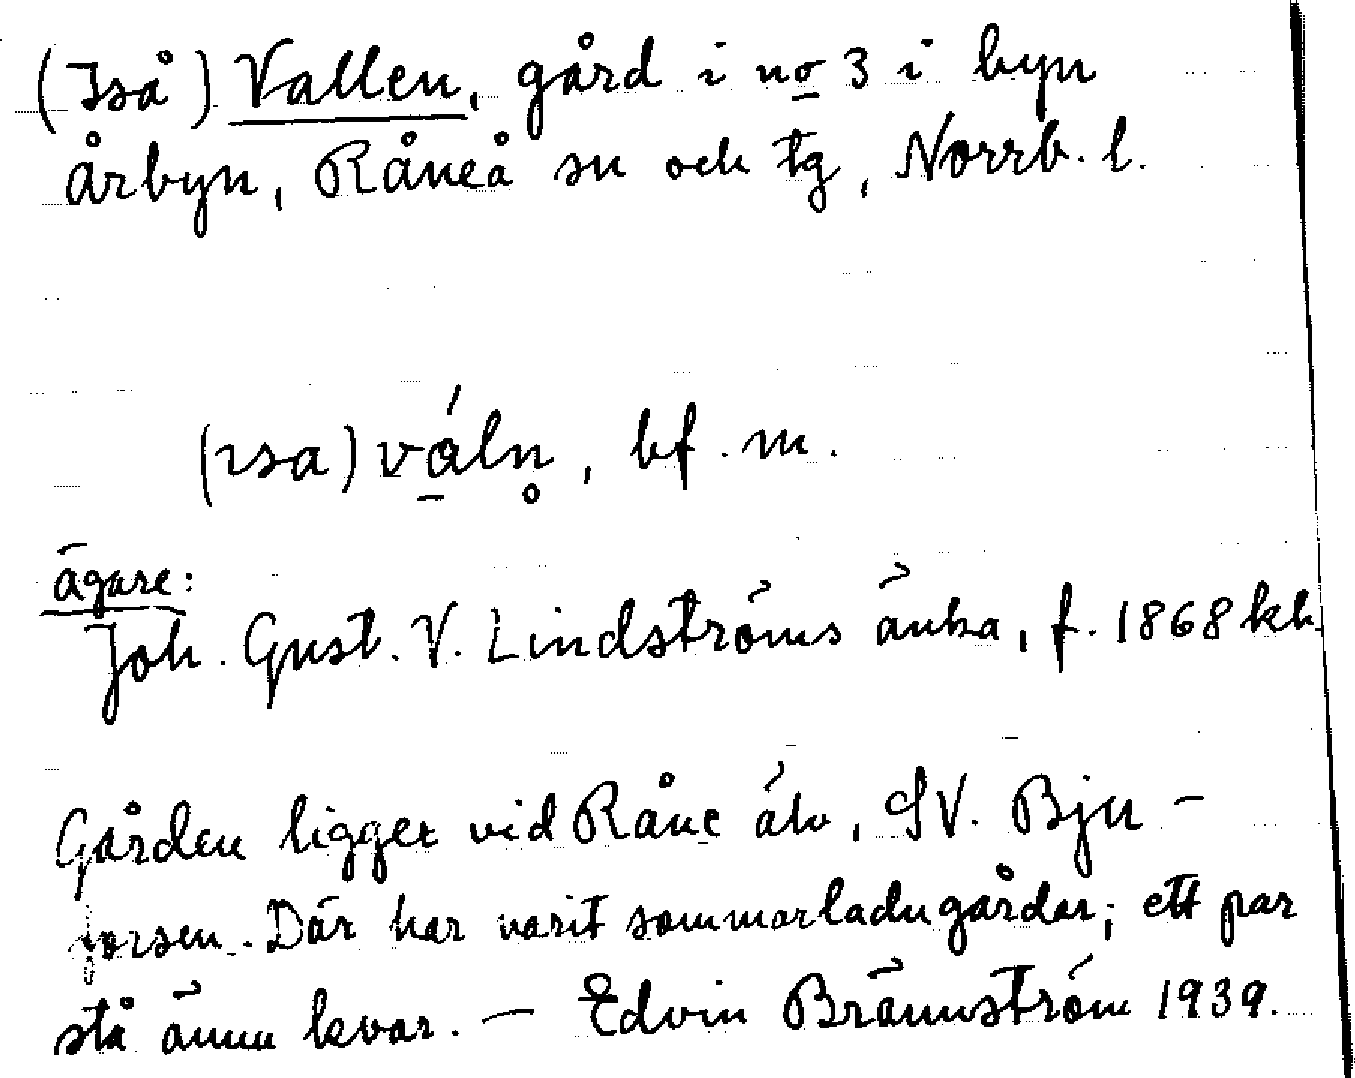 (Iså) Vallen, gård i no 3 i byn
Årbyn, Råneå sn och tg, Norrb. l.
(ɩsa) váln̥, bf. m.
ägare:
Joh. Gust. V. Lindströms änka, f. 1868 kh.
Gården ligger vid Råne älv, SV. Bju-
forsen. Där har varit sommarladugårdar; ett par
stå ännu kvar. — Edvin Brännström 1939.